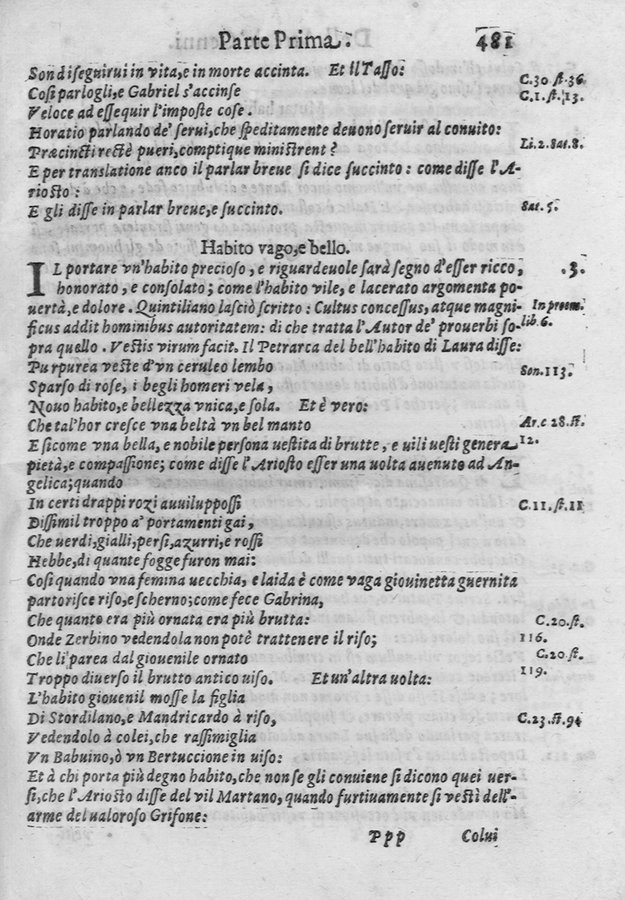 Parte Prima. 481
Son di seguirui in vita, e in morte accinta. Et il Tasso: C.30 st.36.
Cosi parlogli, e Gabriel s'accinse C.1. st. 13.
Veloce ad essequir l'imposte cose.
Horatio parlando de' serui, che speditamente deuono seruir al conuito:
Præcincti rectè pueri, comptique ministrent? Li.2.Sat.8.
E per translatione anco il parlar breue si dice succinto: come disse l'A-
riosto:
E gli disse in parlar breue, e succinto. Sat. 5.
Habito vago, e bello.
IL portare vn'habito precioso, e riguardeuole sarà segno d'esser ricco, .3.
honorato, e consolato; come l'habito vile, e lacerato argomenta po-
uertà, e dolore. Quintiliano lasciò scritto: Cultus concessus, atque magni- In proem.
ficus addit hominibus autoritatem: di che tratta l'Autor de' prouerbi so- lib.6.
pra quello. Vestis virum facit. Il Petrarca del bell'habito di Laura disse:
Purpurea veste d'vn ceruleo lembo Son.113.
Sparso di rose, i begli homeri vela,
Nouo habito, e bellezza vnica, e sola. Et è vero:
Che tal'hor cresce vna beltà vn bel manto Ar.c 28.st.
E sicome vna bella, e nobile persona uestita di brutte, e uili uesti genera 12.
pietà, e compassione; come disse l'Ariosto esser una uolta auenuto ad An-
gelica; quando
In certi drappi rozi auuiluppossi C.11.st.11
Dissimil troppo a' portamenti gai,
Che uerdi, gialli, persi, azurri, e rossi
Hebbe, di quante fogge furon mai:
Cosi quando vna femina uecchia, e laida è come vaga giouinetta guernita
partorisce riso, e scherno; come fece Gabrina,
Che quanto era più ornata era più brutta: C.20.st.
Onde Zerbino vedendola non potè trattenere il riso; 116.
Che li parea dal giouenile ornato C.20.st.
Troppo diuerso il brutto antico uiso. Et un'altra uolta: 119.
L'habito giouenil mosse la figlia
Di Stordilano, e Mandricardo à riso, C.23.st.94
Vedendolo à colei, che rassimiglia
Vn Babuino, ò vn Bertuccione in uiso:
Et à chi porta più degno habito, che non se gli conuiene si dicono quei uer-
si, che l'Ariosto disse del vil Martano, quando furtiuamente si vestì dell'-
arme del ualoroso Grifone:
Ppp Colui